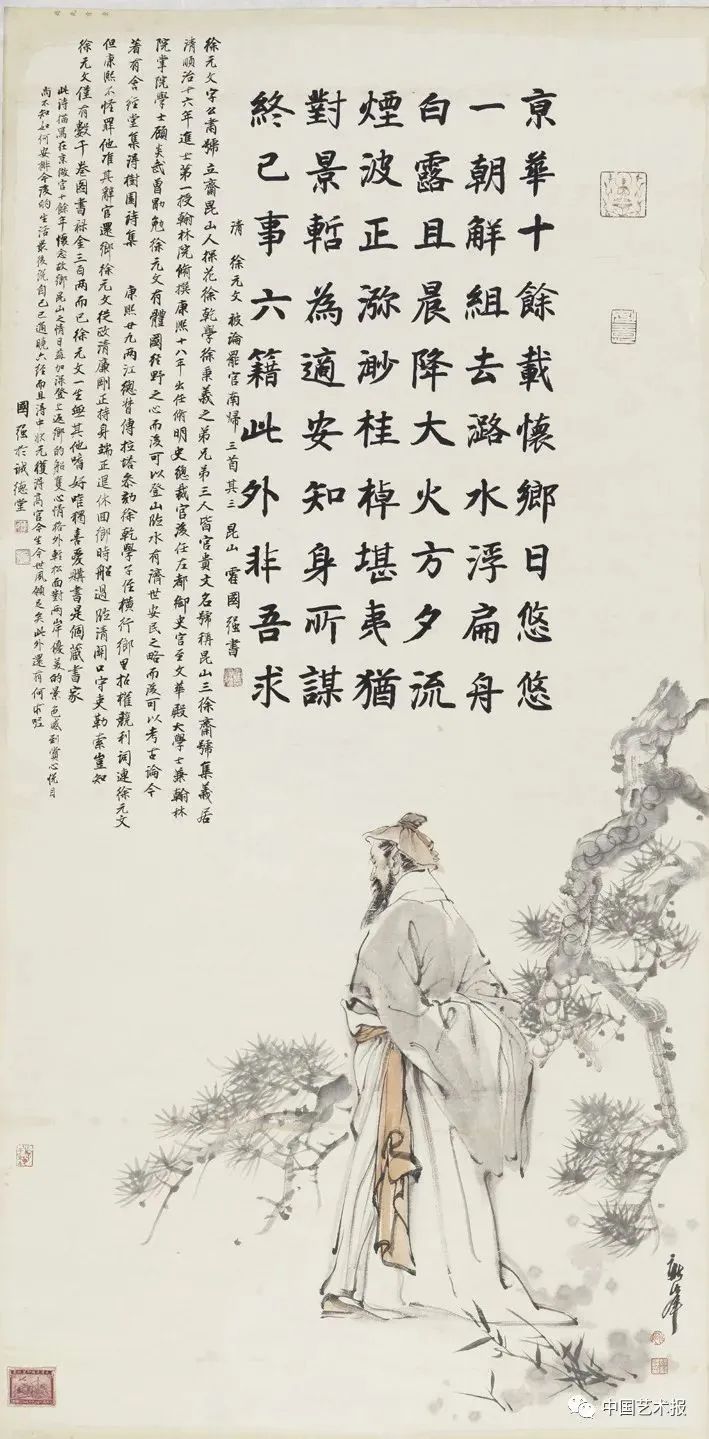 京華十餘載懷鄉日悠悠
一朝解組去潞水浮扁舟
白露且晨降大火方夕流
煙波正渺渺桂棹堪夷猶
對景暫為適安知身所謀
終已事六籍此外非吾求
清 徐元文 被論罷官南歸 三首其三 昆山 霍國强書
徐元文字公肅號立齋昆山人探花徐乾學徐秉義之弟兄弟三人皆官貴文名號稱昆山三徐齋號集義居
清順治十六年進士第一授翰林院脩撰康熙十八年出任脩明史總裁官後任左都御史官至文華殿大學士兼翰林
院掌院學士顧炎武曾勖勉徐元文有體國經野之心而後可以登山臨水有濟世安民之略而後可以考古論今
著有含經堂集得樹園詩集 康熙廿九兩江總督傅拉塔參劾徐乾學子侄橫行鄉里招權競利詞連徐元文
但康熙不怪罪他准其解官還鄉徐元文從政清廉剛正持身端正退休回鄉時船過臨清關口守吏勒索豈知
徐元文僅有數千卷圖書祿金三百兩而已徐元文一生無其他嗜好唯獨喜愛購書是個藏書家
此詩描寫在京做官十餘年懷念故鄉昆山之情日益加深登上返鄉的船隻心情格外輕松面對兩岸優美的景色感到賞心悦目
尚不知如何安排今後的生活最後說自己已通曉六經而且清中狀元獲得高官今生今世夙願足矣此外還有何求呢
國强於誠德堂
中国艺术报